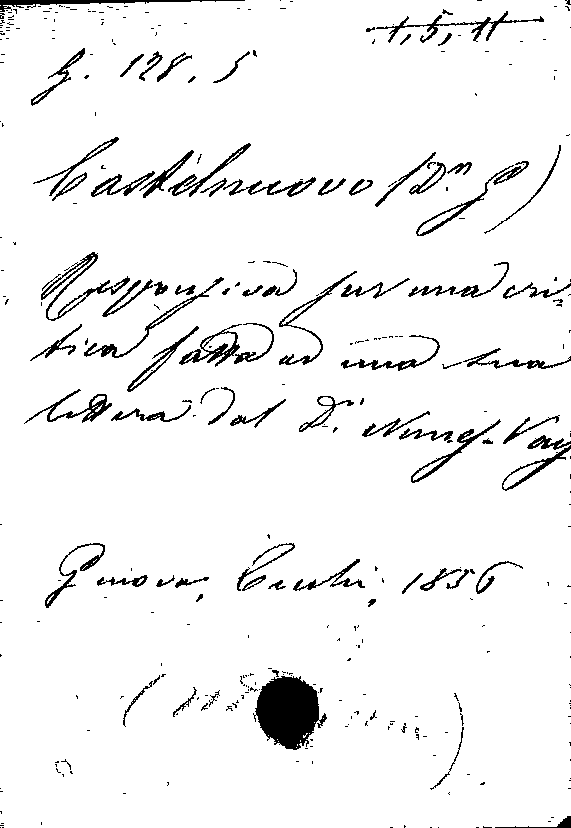 1, 5, 11
G. 128. 5
Castelnuovo (D.n G.)
Responsiva sur una cri-
tica fatta ad una sua
lettera dal D.r Nunes-Vay
Genova, 1856